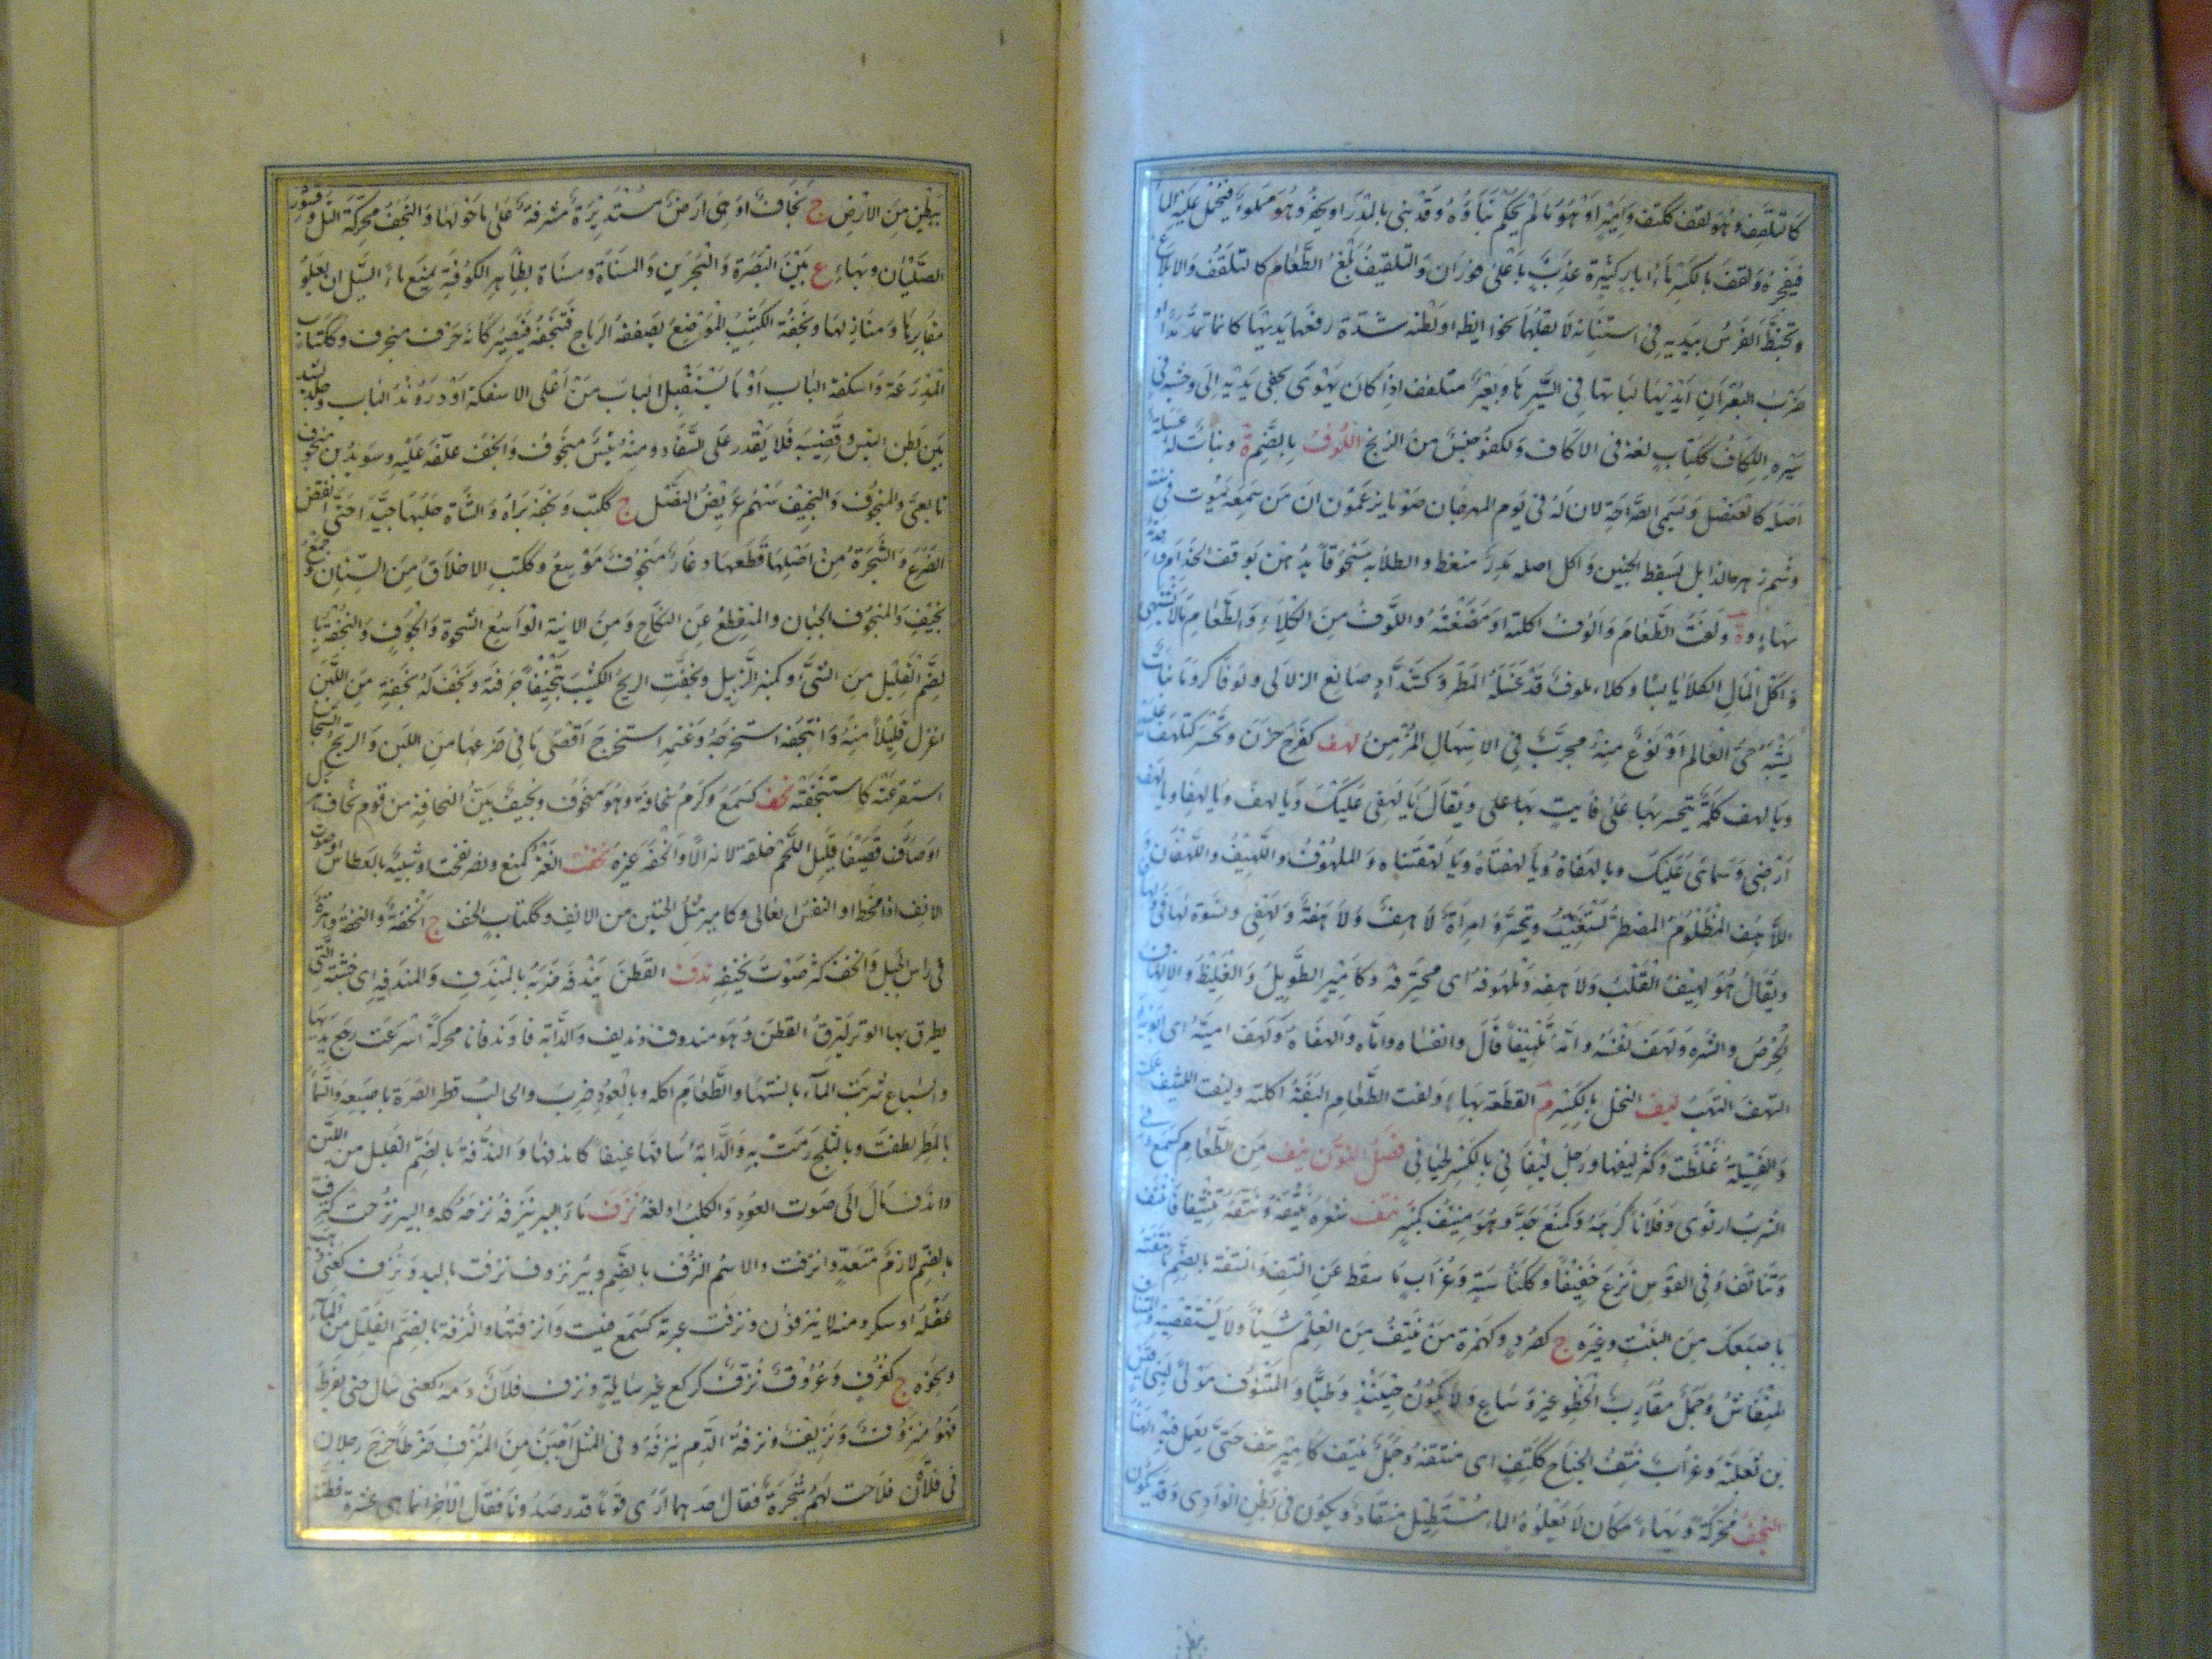 كالتلقف وهو لقف ككتف وامير او هو ما لم يحكم بناؤه وقد بني بالمدر او يحفر وهو مملوء فيحمل عليه الماء
فيفجره ولقف بالكسر ماء ابار كثيرة عذب باعلى قوران والتلقيف بلع الطعام كالتلقف والابلاع
وتخبط الفرس بيديه في استنانه لا يقلهما نحو بطنه او بطنه شدة رفعها يديها كانما تمد مدا او
ضرب البعران ايديها لباتها في السير وبعير متلقف اذا كان يهوي بخفي يديه الى وحشيه في
سيره اللكاف ككتاب لغة في الاكاف ولكفو جنس من الزنج اللوف بالضم ة ونبات له بصلة
اصله كالعنصل وتسمى الصراخة لان له في يوم المهرجان صوتا يزعمون ان من سمعه يموت في سنته
وشم زهره الذابل يسقط الجنين واكل اصله مدر منعظ والطلاء به مسحوقا بدهن يوقف الجذام
بهاء وة ولفت الطعام والوف اكلته او مضغته واللوف من الكلاء والطعام ما لا يشتهى
واكل المال الكلا يابسا وكلاء ملوف قد غسله المطر وكشداد صانع الزلالي ولوفا كروما نبات
يشبه حي العالم او نوع منه مجرب في الاسهال المزمن لهف كفرح حزن وتحسر كتلهف عليه
ويا لهف كلمة يتحسر بها على فايت بها على ويقال يا لهفي عليك ويا لهف ويا لهفا ويا لهف
ارضي وسمائي عليك ويا لهفاه ويا لهفتاه ويا لهفتياه والملهوف واللهيف واللهفان و
اللاهف المظلوم المضطر يستغيث ويتحسر وامراة لاهف ولاهفة ولهفى ونسوة لهافى ولهاف
ويقال هو لهيف القلب ولاهفه وملهوفه اي محترقه وكامير الطويل والغليظ والالهاف
الحرص والشره ولهف نفسه وامه تلهيفا قال وانفساه واماه والهفاه ولهف اميه اي ابويه
التهف التهب ليف النخل بالكسر م القطعة بهاء ولفت الطعام اليفه اكلته وليفت الليف عملته
والفسيلة غلظت وكثر ليفها ورجل ليفاني بالكسر لحياني فصل النون نئف من الطعام كسمع
الشرب ارتوى وفلانا كرهه وكمنع جد وهو مناف كمنبر نتف شعره ينتفه ونتفه تنتيفا فانتف
وتناتف وفي القوس نزع خفيفا وككناسة وغراب ما سقط عن النتف والنتفة بالضم ما نتفته
باصبعك من النبت وغيره ج كصرد وكهمزة من ينتف من العلم شيئا ولا يستقصيه
المنقاش وجمل مقارب الخطو غير وساع ولا يكون حينئذ وطيا والمنتوف مولى لبني قيس
بن ثعلبة وغراب نتف الجناح ككتف اي منتتفه وجمل نتيف كامير نتف حتى يعمل فيه الهناء
النجف محركة وبهاء مكان لا يعلوه الماء مستطيل منقاد ويكون في بطن الوادي وقد يكون
ببطن من الارض ج نجاف او هي ارض مستديرة مشرفة على ما حولها والنجف محركة التل وقشور
الصليان وبهاء ع بين البصرة والبحرين والمسناة ومسناة بظاهر الكوفة يمنع ماء السيل ان يعلو
مقابرها ومنازلها ونجفة الكثيب الموضع يصفقه الرياح فتنجفه فيصير كانه جرف منجرف وككتاب
المدرعة واسكفة الباب او ما يستقبل الباب من اعلى الاسكفة او دروند الباب وجلد يشد
بين بطن التيس وقضيبه فلا يقدر على السفاد ومنه تيس منجوف وانجف علقه عليه وسويد بن منجوف
تابعي والمنجوف والنجيف سهم عريض النصل ج ككتب ونجفه براه والشاة حلبها جيدا حتى انفض
الضرع والشجرة من اصلها قطعها وغار منجوف موسع وككتب الاخلاق من الشنان وجمع
نجيف والمنجوف الجبان والمنقطع عن النكاح ومن الانية الواسع الشحوة والجوف والنجفة
بالضم القليل من الشيء وكمنبر الزبيل ونجفت الريح الكثيب تنجيفا جرفته ونجف له نجفة من اللبن
اعزل قليلا منه وانتجفه استخرجه وغنمه استخرج اقصى ما في ضرعها من اللبن والريح السحاب
استفرغته كاستنجفته نحف كسمع وكرم نحافة وهو منحوف ونحيف بين النحافة من قوم نحاف هزل
او صار قضيفا قليل اللحم خلقة لا هزالا وانحفه غيره نخفت العنز كمنع ونصر نفخت او شبيه بالعطاس او صوت
الانف اذا مخط او النفس العالي وكامير مثل الخنين من الانف وككتاب الخف ج انخفة والنخفة
في راس الجبل وانخف كثر صوت نخيفه ندف القطن يندفه ضربه بالمندف والمندفة اي خشبته التي
يطرق بها الوتر ليرق القطن وهو مندوف ونديف والدابة ندفا وندفانا محركة اسرعت رجع يديها
والسباع شربت الماء بالسنتها والطعام اكله وبالعود ضرب والحالب فطر الضرة باصبعه والسماء
بالمطر نطفت وبالثلج رمت به والدابة ساقها عنيفا كاندفها والندفة بالضم القليل من اللبن
واندف مال الى صوت العود والكلب اولغه نزف ماء البير ينزفه نزحه كله والبير نزحت كنزفت
بالضم لازم متعد وانزفت والاسم النزف بالضم وبير نزوف نزفت باليد ونزف كعني ذهب
عقله او سكر ومنه لا ينزفون ونزفت عبرته كسمع فنيت وانزفتها والنزفة بالضم القليل من الماء
ونحوه ج كغرف وعروق نزف كركع غير سايلة ونزف فلان دمه كعني سال حتى يفرط
فهو منزوف ونزيف ونزفه الدم ينزفه وفي المثل اجبن من المنزوف ضرطا خرج رجلان
في فلاة فلاحت لهم شجرة فقال احدهما ارى قوما قد رصدونا فقال الاخر انما هي عشرة فظنه